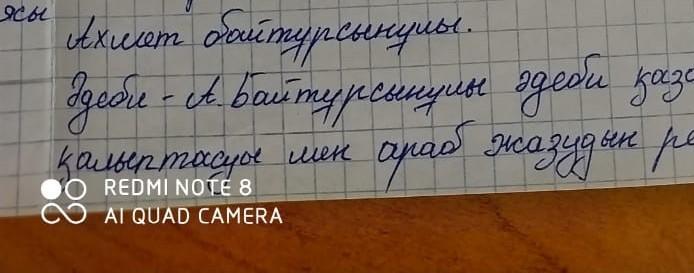 ясы
Ахмет байтұрсынұлы.
Әдеби - А. Байтұрсынұлы әдеби қаза
қалыптасуы мен араб жазудын ре
REDMI NOTE 8
AI QUAD CAMERA